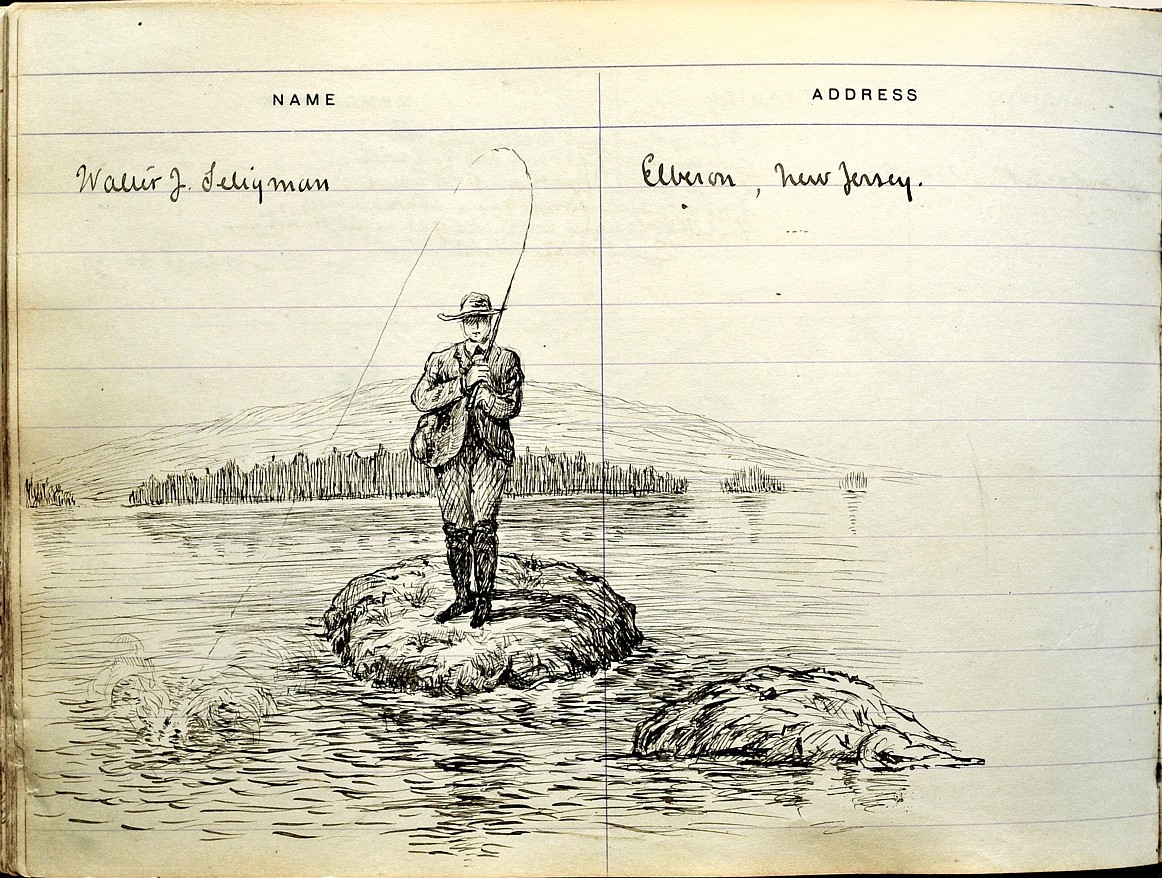 NAME ADDRESS
Walter J. Seligman Elberon, New Jersey.